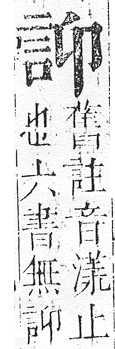 舊註音漾止
也六書無